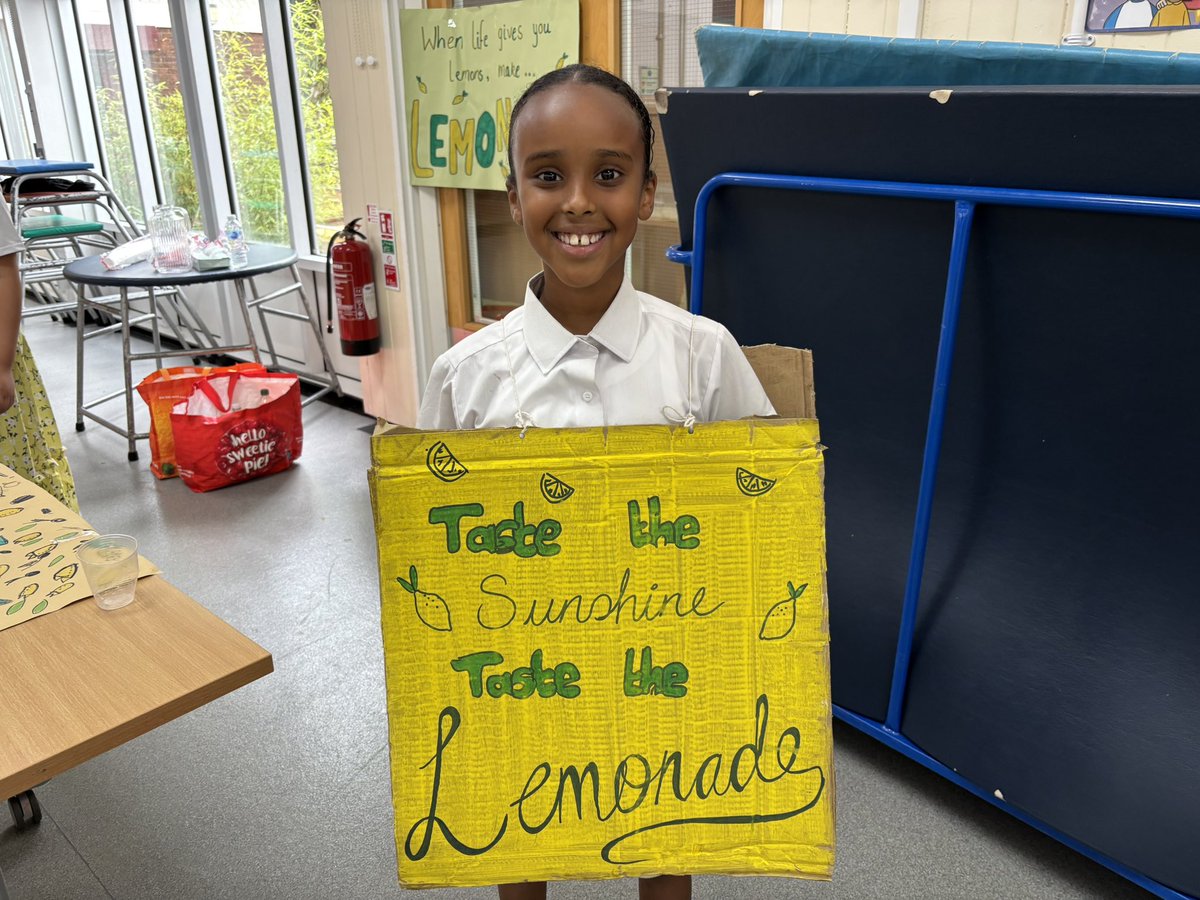 When life gives you
Lemons, make...
LEMON
hello
sweetie
pie!
Taste the
Sunshine
Taste the
Lemonade